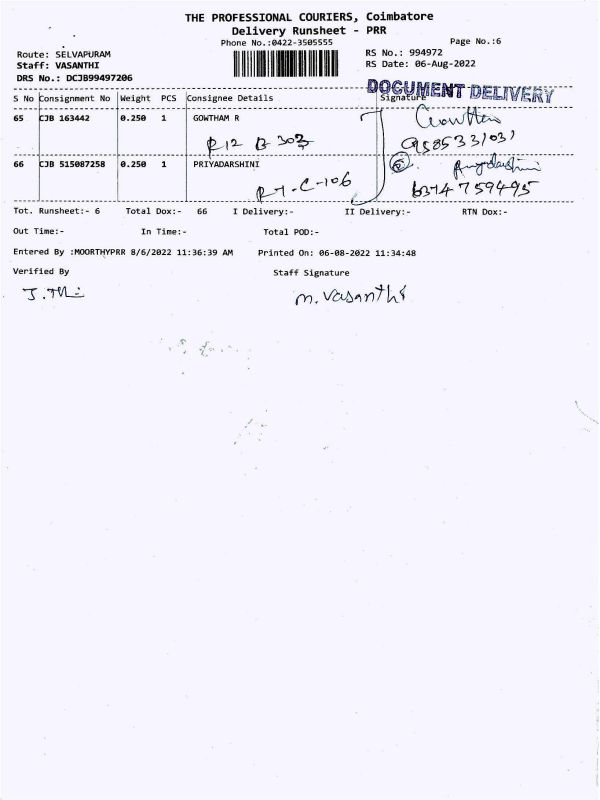 THE PROFESSIONAL COURIERS, Coimbatore
Delivery Runsheet - PRR
Phone No.:0422-3505555
Page No.:6
Route: SELVAPURAM
RS No.: 994972
Staff: VASANTHI
RS Date: 06-Aug-2022
DRS No.: DCJB99497206
DOCUMENT DELIVERY
S No Consignment No Weight PCS Consignee Details Signature
65 CJB 163442 0.250 1 GOWTHAM R
Gowtham
R12 B 303
66 CJB 515087258 0.250 1 PRIYADARSHINI
Priyadarshini
R7-C-106
6374759495
Tot. Runsheet:- 6 Total Dox:- 66 I Delivery:- II Delivery:- RTN Dox:-
Out Time:- In Time:- Total POD:-
Entered By :MOORTHYPRR 8/6/2022 11:36:39 AM Printed On: 06-08-2022 11:34:48
Verified By Staff Signature
M. Vasanthi